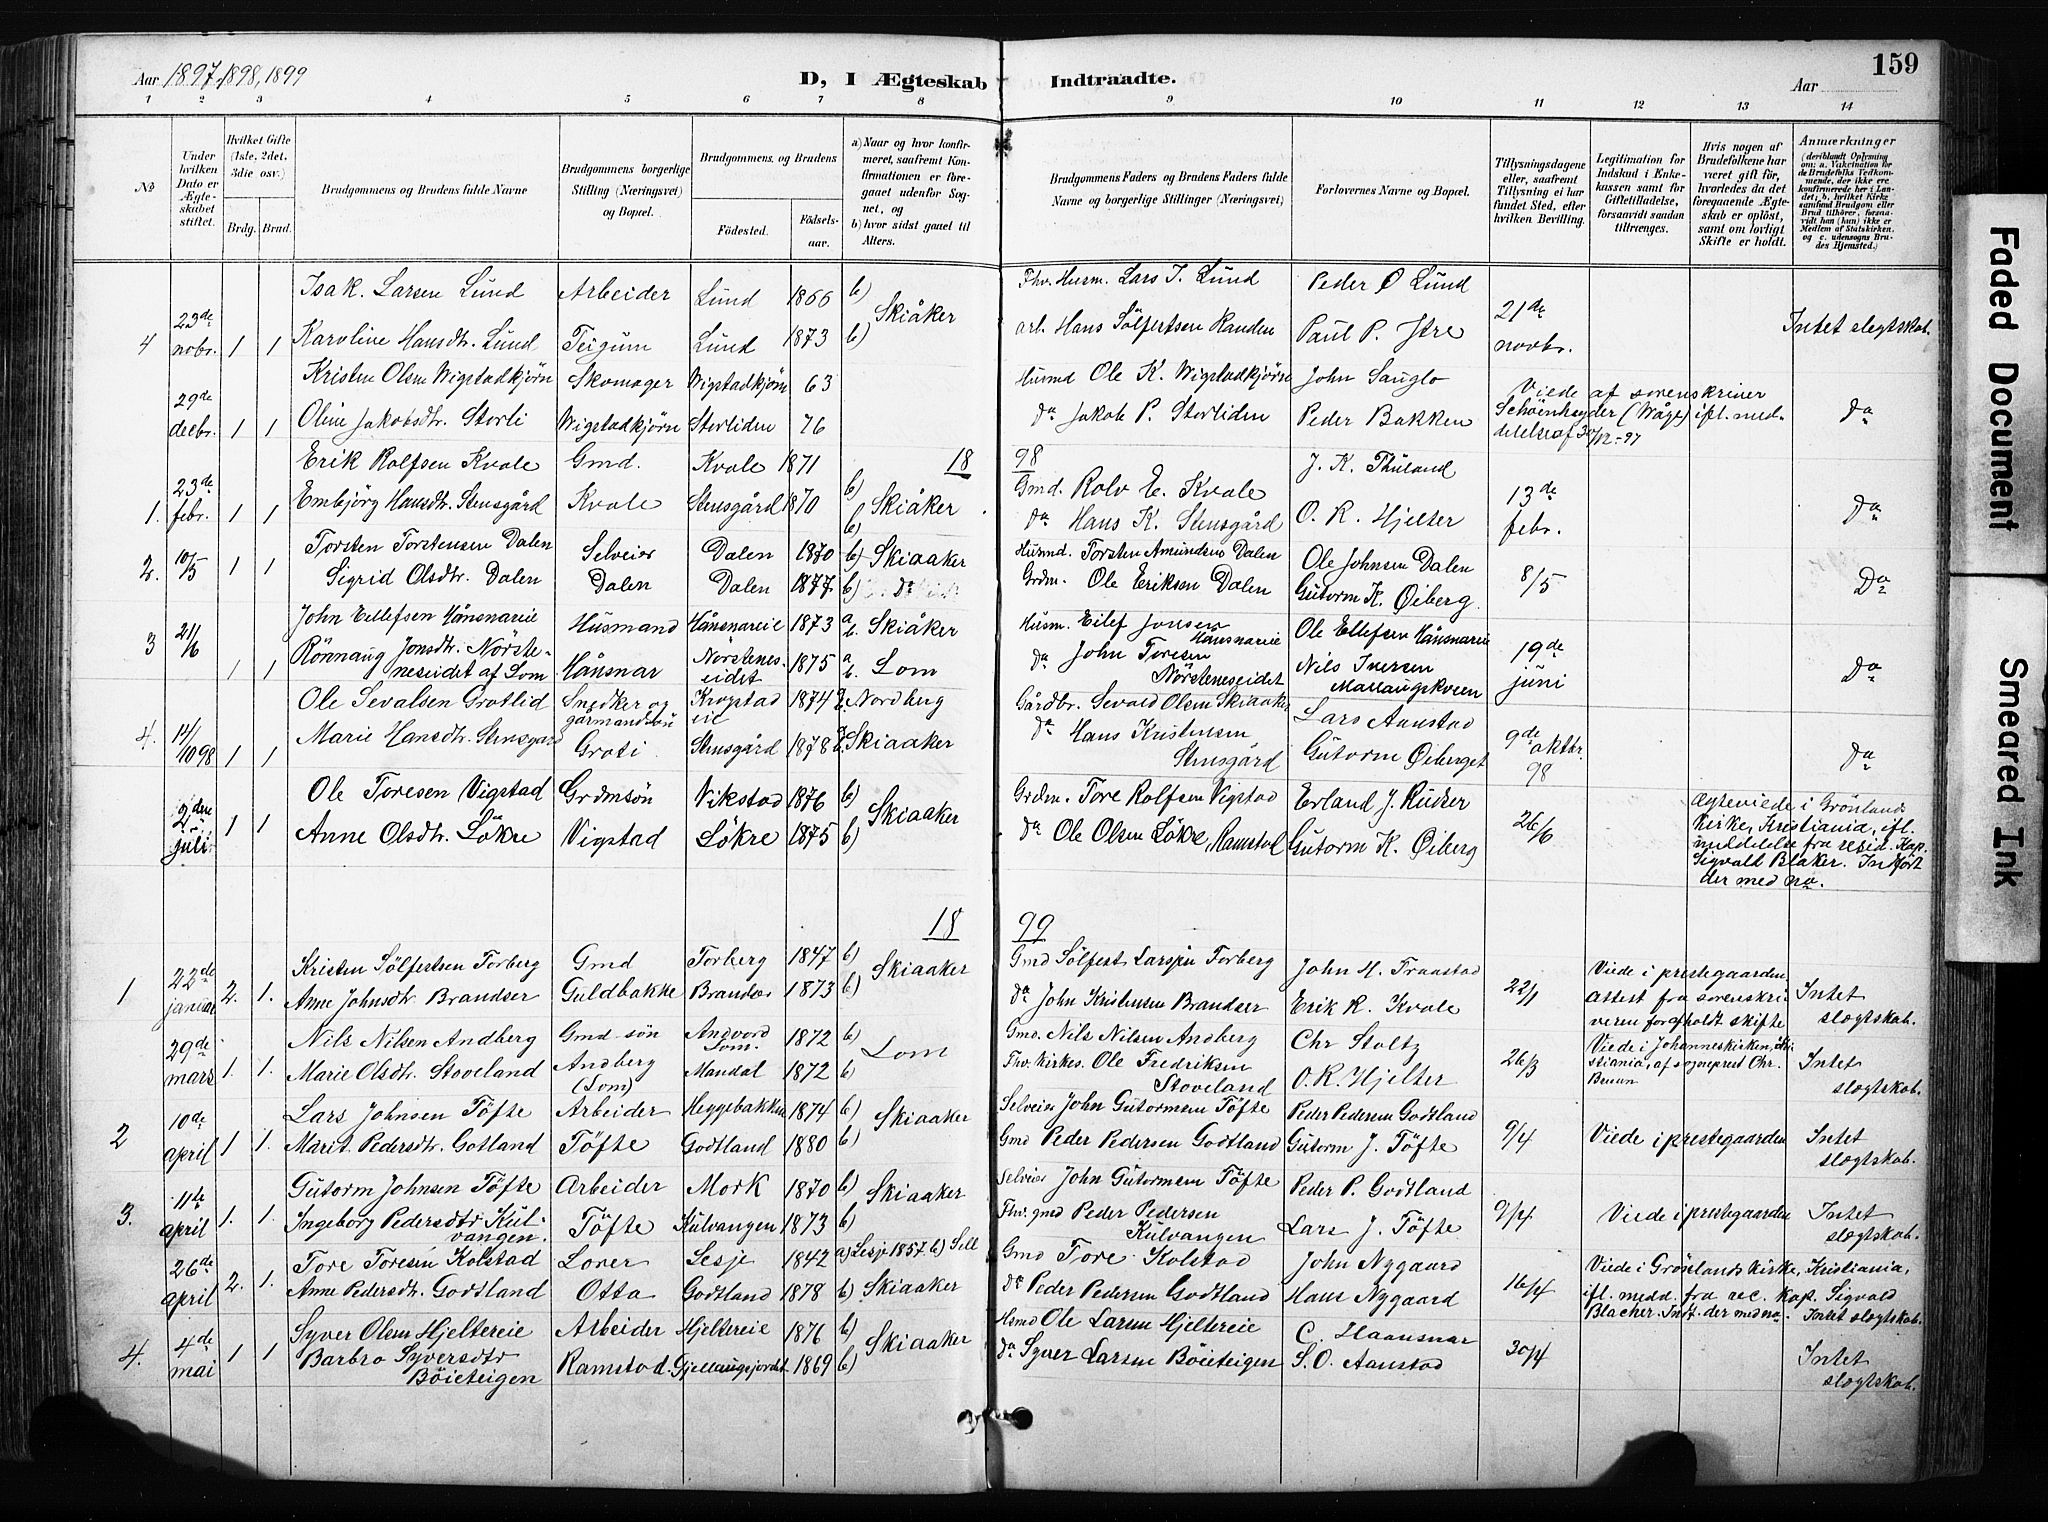 Aar 1897, 1898, 1899
D, I Ægteskab Indtraadte.
Aar
159
1 2 3 4 5 6 7 8 9 10 11 12 13 14
No
Under hvilken Dato er Ægteskabet stiftet.
Hvilket Gifte (1ste, 2det, 3die osv.)
Brdg. Brud.
Brudgommens og Brudens fulde Navne
Brudgommens borgerlige Stilling (Næringsvei) og Bopæl.
Brudgommens og Brudens
Födested.
Födselsaar.
a) Naar og hvor konfirmeret, saafremt Konfirmationen er foregaaet udenfor Sognet, og
b) hvor sidst gaaet til Alters.
Brudgommens Faders og Brudens Faders fulde Navne og borgerlige Stillinger (Næringsvei)
Forlovernes Navne og Bopæl.
Tillysningsdagene eller, saafremt Tillysning ei har fundet Sted, efter hvilken Bevilling.
Legitimation for Indskud i Enkekassen samt for Giftetilladelse, forsaavidt saadan tiltrænges.
Hvis nogen af Brudefolkene har været gift før, hvorledes da det foregaaende Ægteskab er oplöst, samt om lovligt Skifte er holdt.
Anmærkninger
(deriblandt Oplysning om: a. Vakcination for de Brudefolks Vedkommende, der ikke ere konfirmerede her i Landet; b. hvilket Kirkesamfund Brudgom eller Brud tilhörer, forsaavidt han (hun) ikke er Medlem af Statskirken, og c. udensogns Brudes Hjemsted.)
Isak. Larsen Lund Arbeider Lund 1866 b) Fhv. Husm. Lars I. Lund Peder Ø Lund
4 23de novbr. 1 1 Karoline Hansdtr. Lund Teigum Lund 1873 b) Skiåker arb. Hans Sölfertsen Randen Paul P. Itre 21de novbr. Intet slegtskab.
Kristen Olsen Wigstadkjörn Skomager Wigstadkjörn 63 Husmd Ole K. Wigstadkjörn John Sauglo Viede af sorenskriver
29de decbr. 1 1 Oline Jakobsdtr. Storli Wigstadkjörn Storliden 76 da Jakob P. Storliden Peder Bakken (Vågå) ifl. meddelelse af 30/12-97 da
18 98
Erik Rolfsen Kvale Gmd. Kvale 1871 b) Gmd. Rolv E. Kvale J. K. Thuland
1. 23de febr. 1 1 Embjörg Hansdtr. Stensgård Kvale Stensgård 1870 b) Skiåker da Hans K. Stensgård O. R. Hjelter 13de febr. da
Torsten Torstensen Dalen Selveier Dalen 1870 b) Skiaaker Husmd. Torsten Amundsen Dalen Ole Johnsen Dalen
2. 10/5 1 1 Sigrid Olsdtr. Dalen Dalen Dalen 1877 b) Grdm. Ole Eriksen Dalen Gutorm K. Öiberg. 8/5 da
John Ellefsen Hånsnareie Husmand Hånsnareie 1873 a b. Skiåker Husm. Eilef Jonsen Hånsnareie Ole Ellefsen Hånsnareie
3 21/6 1 1 Rönnaug Jonsdtr. Nörsteneseidet af Lom Hånsnar Nörsteneseidet 1875 a b. Lom da John Toresen Nörsteneseidet Nils Iversen 19de juni da
Ole Sevalsen Grotlid Snedker og Krogstadeie 1874 Nordberg Gårdbr. Sevald Olsen Skiaaker Lars Aanstad
4. 14/10 98 1 1 Marie Hansdtr. Stensgard Groti Stensgård 1878 Skiaaker da Hans Kristensen Stensgård Gutorm Öiberget 9de oktbr. 98 da
Ole Toresen Vigstad Grdmsön Vikstad 1876 b) Grdm. Tore Rolfsen Vigstad Erland J. Rudser
2den juli 1 1 Anne Olsdtr. Lökre Vigstad Lökre 1875 b) Skiaaker da Ole Olsen Lökre, Ramstad Gutorm K. Öiberg 26/6 Ægteviede i Grönlands kirke, Kristiania, ifl. meddelelse fra resid. Kap. Sigvald Blaker. Indfört der med no.
18 99
Kristen Sölfestsen Forberg Gmd Forberg 1847 b) Gmd Sölfest Larsen Forberg John H. Fraastad Viede i prestegaarden
1 22de januar 2. 1. Anne Johnsdtr. Brandser Guldbakke Brandser 1873 b) Skiaaker da John Kristensen Brandser Erik R. Kvale 22/1 attest fra sorenskriveren for afholdt skifte Intet slegtskab.
Nils Nilsen Andberg Gmd sön Andvord Lom. 1872 b) Gmd. Nils Nilsen Andberg Chr Stoltz Viede i Johanneskirken, Kristiania, af sogneprest Chr. Bruun
29de mars 1. 1. Marie Olsdtr. Stoveland Andberg (Lom) Mandal 1872 b) Lom Fhv. kirkes. Ole Fredriksen Stoveland O. R. Hjelter 26/3 Intet slegtskab.
Lars Johnsen Töfte Arbeider Heggebakken 1874 b) Selveier John Gutormsen Töfte Peder Pedersen Godtland
2 10de april 1 1. Marit Pedersdtr. Gotland Töfte Godtland 1880 b) Skiaaker Gmd Peder Pedersen Godtland Gutorm J. Töfte 9/4 Viede i prestegaarden Intet slegtskab.
Gutorm Johnsen Töfte Arbeider Mork 1870 b) Skiaaker Selveier John Gutormsen Töfte Peder P. Godtland
3. 11te april 1. 1. Ingeborg Pedersdtr Kulvangen. Töfte Kulvangen 1873 b) Fhv. gmd Peder Pedersen Kulvangen Lars J. Töfte 9/4 Viede i prestegaarden Intet slegtskab.
Tore Toresen Kolstad Lorer Lesje 1842 a) Lesje 1857. b) Sell Gmd Tore Kolstad John Nygaard Viede i Grönlands kirke, Kristiania,
26de april 2. 1. Anne Pedersdtr. Godtland Otta Godtland 1878 b) Skiaaker da Peder Pedersen Godtland Hans Nygaard 16/4 ifl. medd. fra res. kap. Sigvald Blacher. Indf. der med no. Intet slegtskab.
Syver Olsen Hjeltereie Arbeider Hjeltereie 1876 b) Hsmd Ole Larsen Hjeltereie C. Haansnar
4. 4de mai 1 1 Barbro Syversdtr Böieteigen Ramstad. Gjellaugsjordet 1869 b) Skiaaker da Syver Larsen Böieteigen S. O. Aanstad 30/4 Intet slegtskab.
Faded Document
Smeared Ink